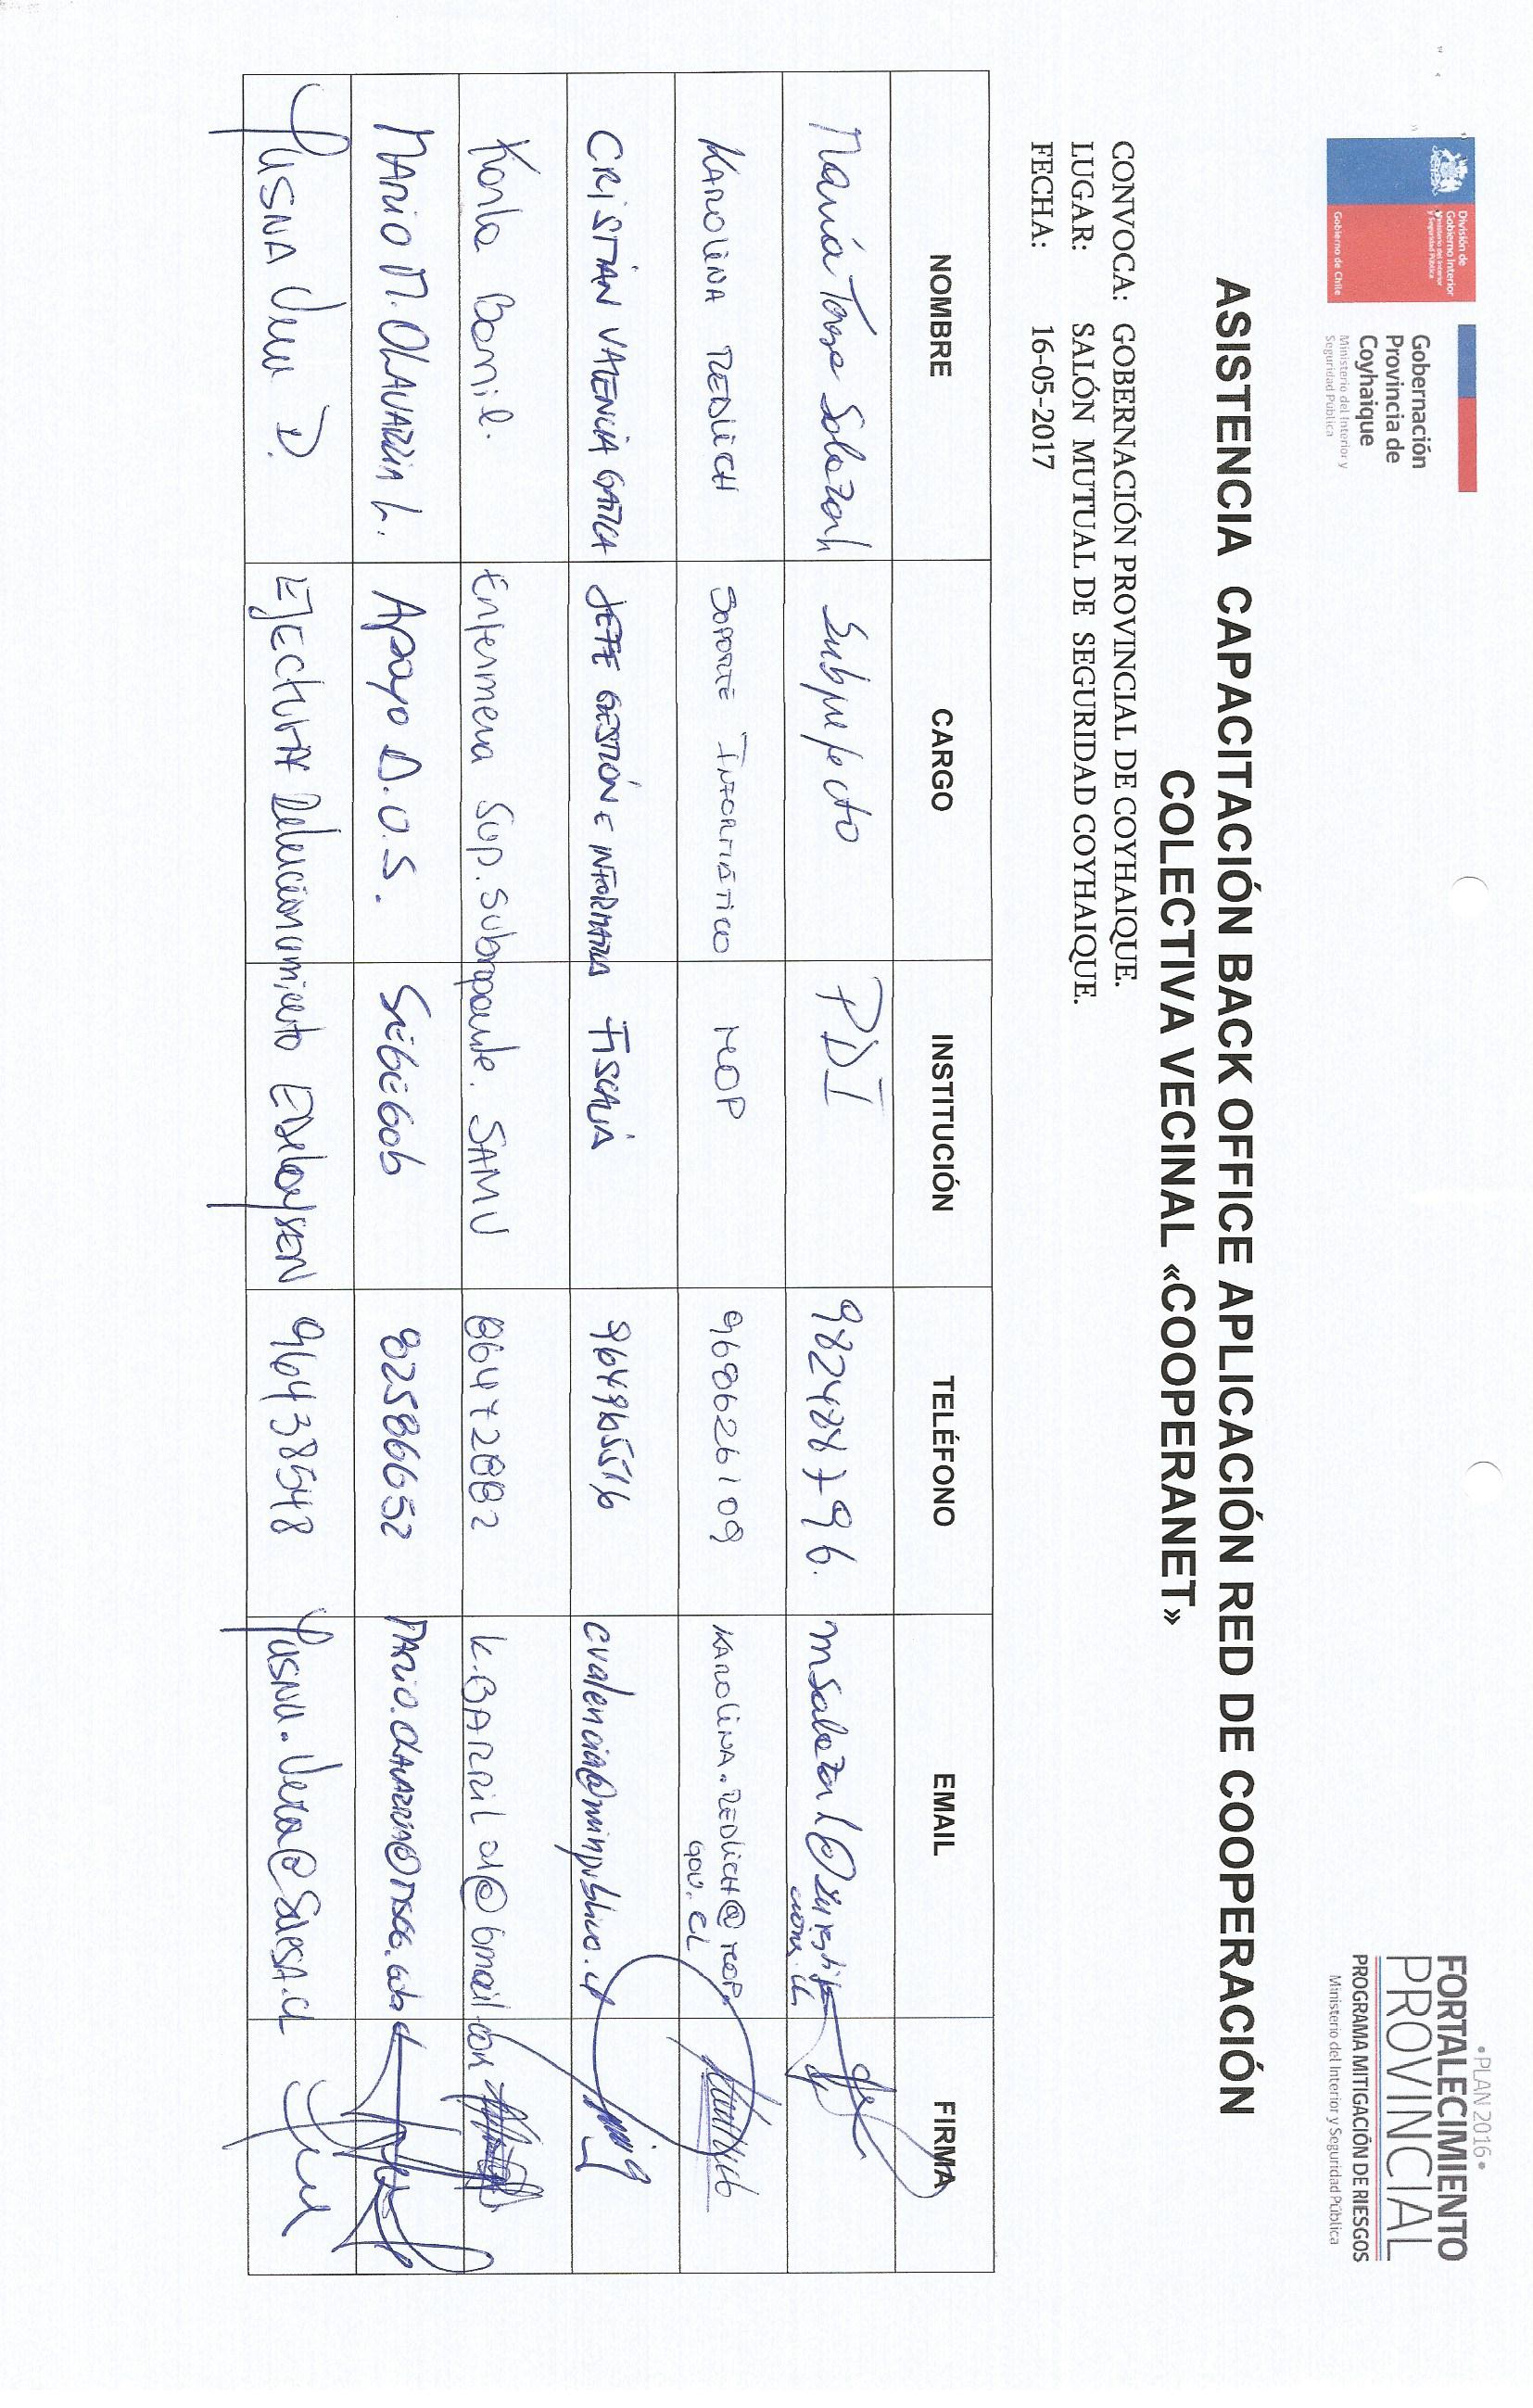 División de
Gobierno Interior
Ministerio del Interior
y Seguridad Pública
Gobierno de Chile
Gobernación
Provincia de
Coyhaique
Ministerio del Interior y
Seguridad Pública
•PLAN 2016•
FORTALECIMIENTO
PROVINCIAL
PROGRAMA MITIGACIÓN DE RIESGOS
Ministerio del Interior y Seguridad Pública
ASISTENCIA CAPACITACIÓN BACK OFFICE APLICACIÓN RED DE COOPERACIÓN
COLECTIVA VECINAL «COOPERANET»
CONVOCA: GOBERNACIÓN PROVINCIAL DE COYHAIQUE.
LUGAR: SALÓN MUTUAL DE SEGURIDAD COYHAIQUE.
FECHA: 16-05-2017
NOMBRE CARGO INSTITUCIÓN TELÉFONO EMAIL FIRMA
María Teresa Salazar Subprefecto PDI 982488796.
KAROLINA REDLICH SOPORTE INFORMÁTICO MOP 968626109 KAROLINA.REDLICH@MOP.
GOV.CL
CRISTIAN VALENCIA GATICA JEFE GESTIÓN E INFORMATICA FISCALIA 964965516 cvalencia@minpublico.cl
Karla Barril. Enfermera Sup. SAMU 86472882 K.BARRIL01@Gmail.com
MARIO M. OLAVARRIA L. APOYO D.O.S. SEGEGOB 82586652 MARIO.OLAVARRIA@MSGG.GOB.CL
YUSNA Vera D. EJECUTIVA Relacionamiento EDELAYSEN 96438548 YUSNA.Vera@SAESA.CL